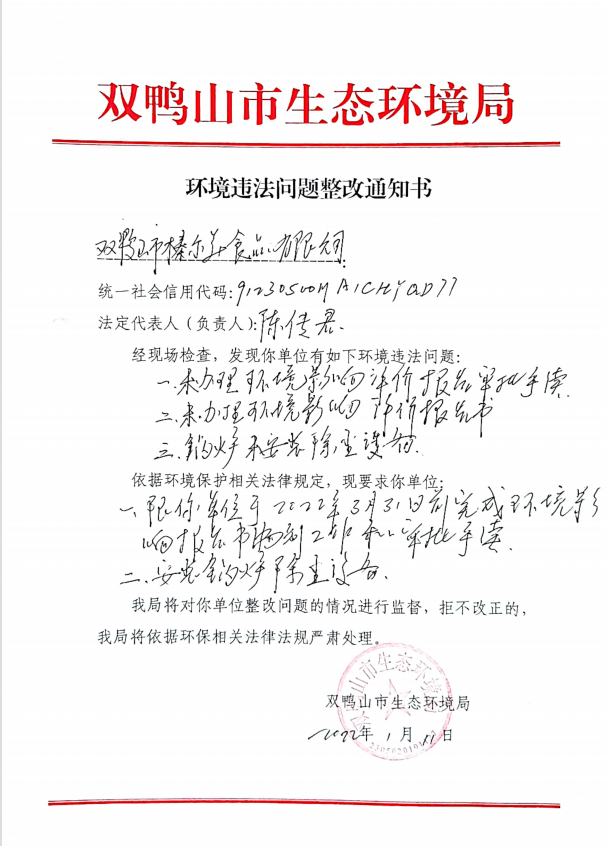 双鸭山市生态环境局
环境违法问题整改通知书
双鸭山市榛尔美食品有限公司:
统一社会信用代码:91230500MA1CHYQD77
法定代表人（负责人）:陈传君.
经现场检查，发现你单位有如下环境违法问题:
一.未办理环境影响评价报告审批手续
二.未办理环境影响评价报告书
三.锅炉未安装除尘设备.
依据环境保护相关法律规定，现要求你单位:
一.限你单位于2022年3月31日前完成环境影
响报告书编制工作和审批手续.
二.安装锅炉除尘设备.
我局将对你单位整改问题的情况进行监督，拒不改正的，
我局将依据环保相关法律法规严肃处理。
双鸭山市生态环境局
双鸭山市生态环境局
2022年1月 日